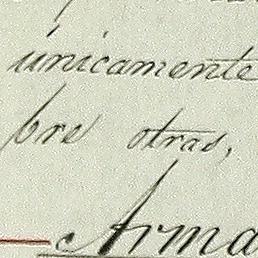 únicamente
bre otras,
Arma